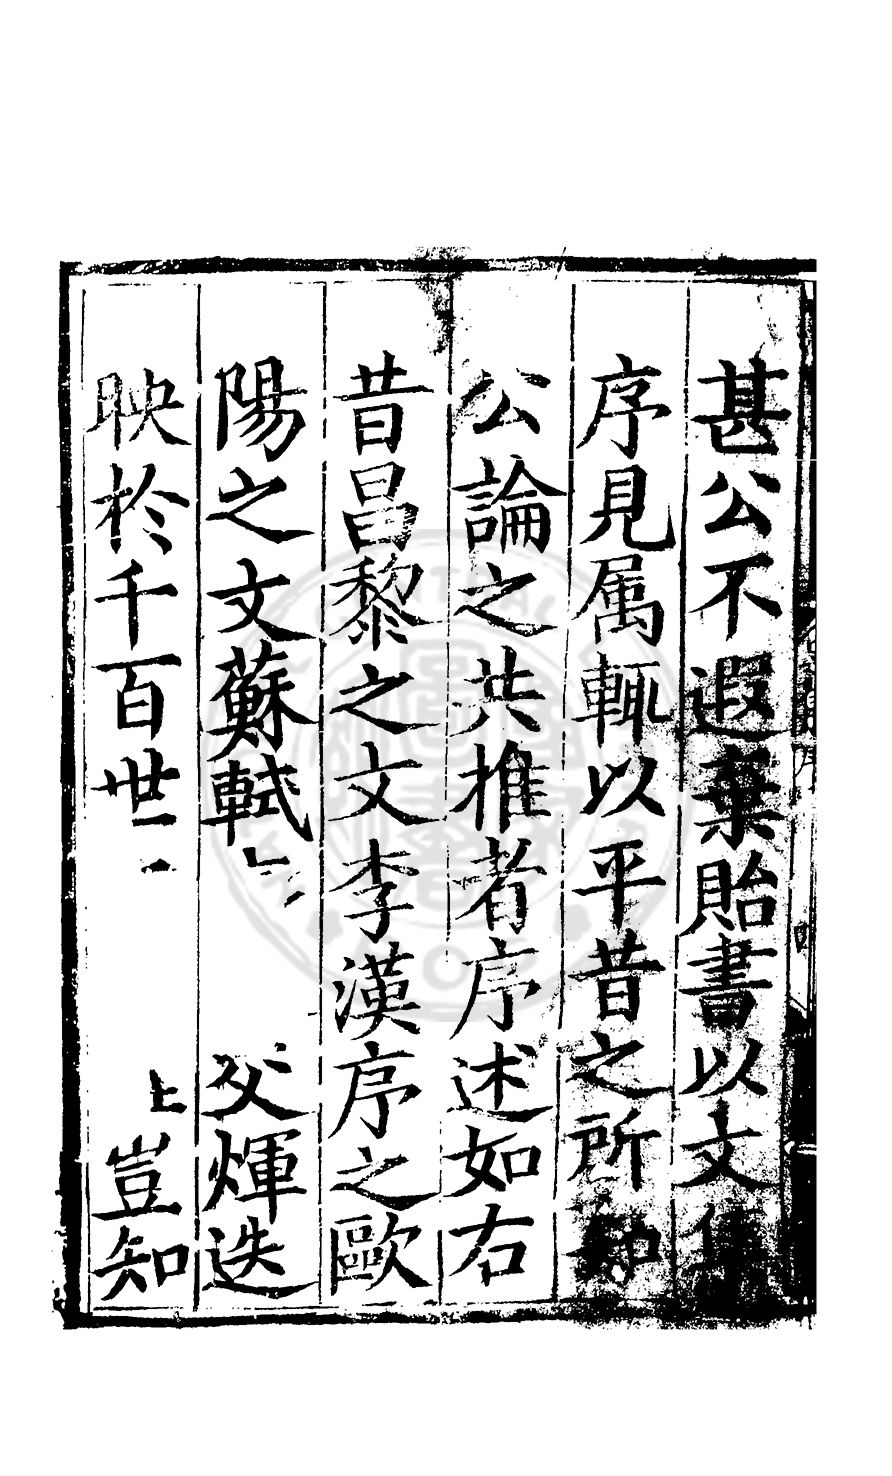 甚公不遐棄貽書以文集
序見属輙以平昔之所知
公論之共推者序述如右
昔昌黎之文李漢序之歐
陽之文蘇軾 父煇迭
映於千百世 上豈知